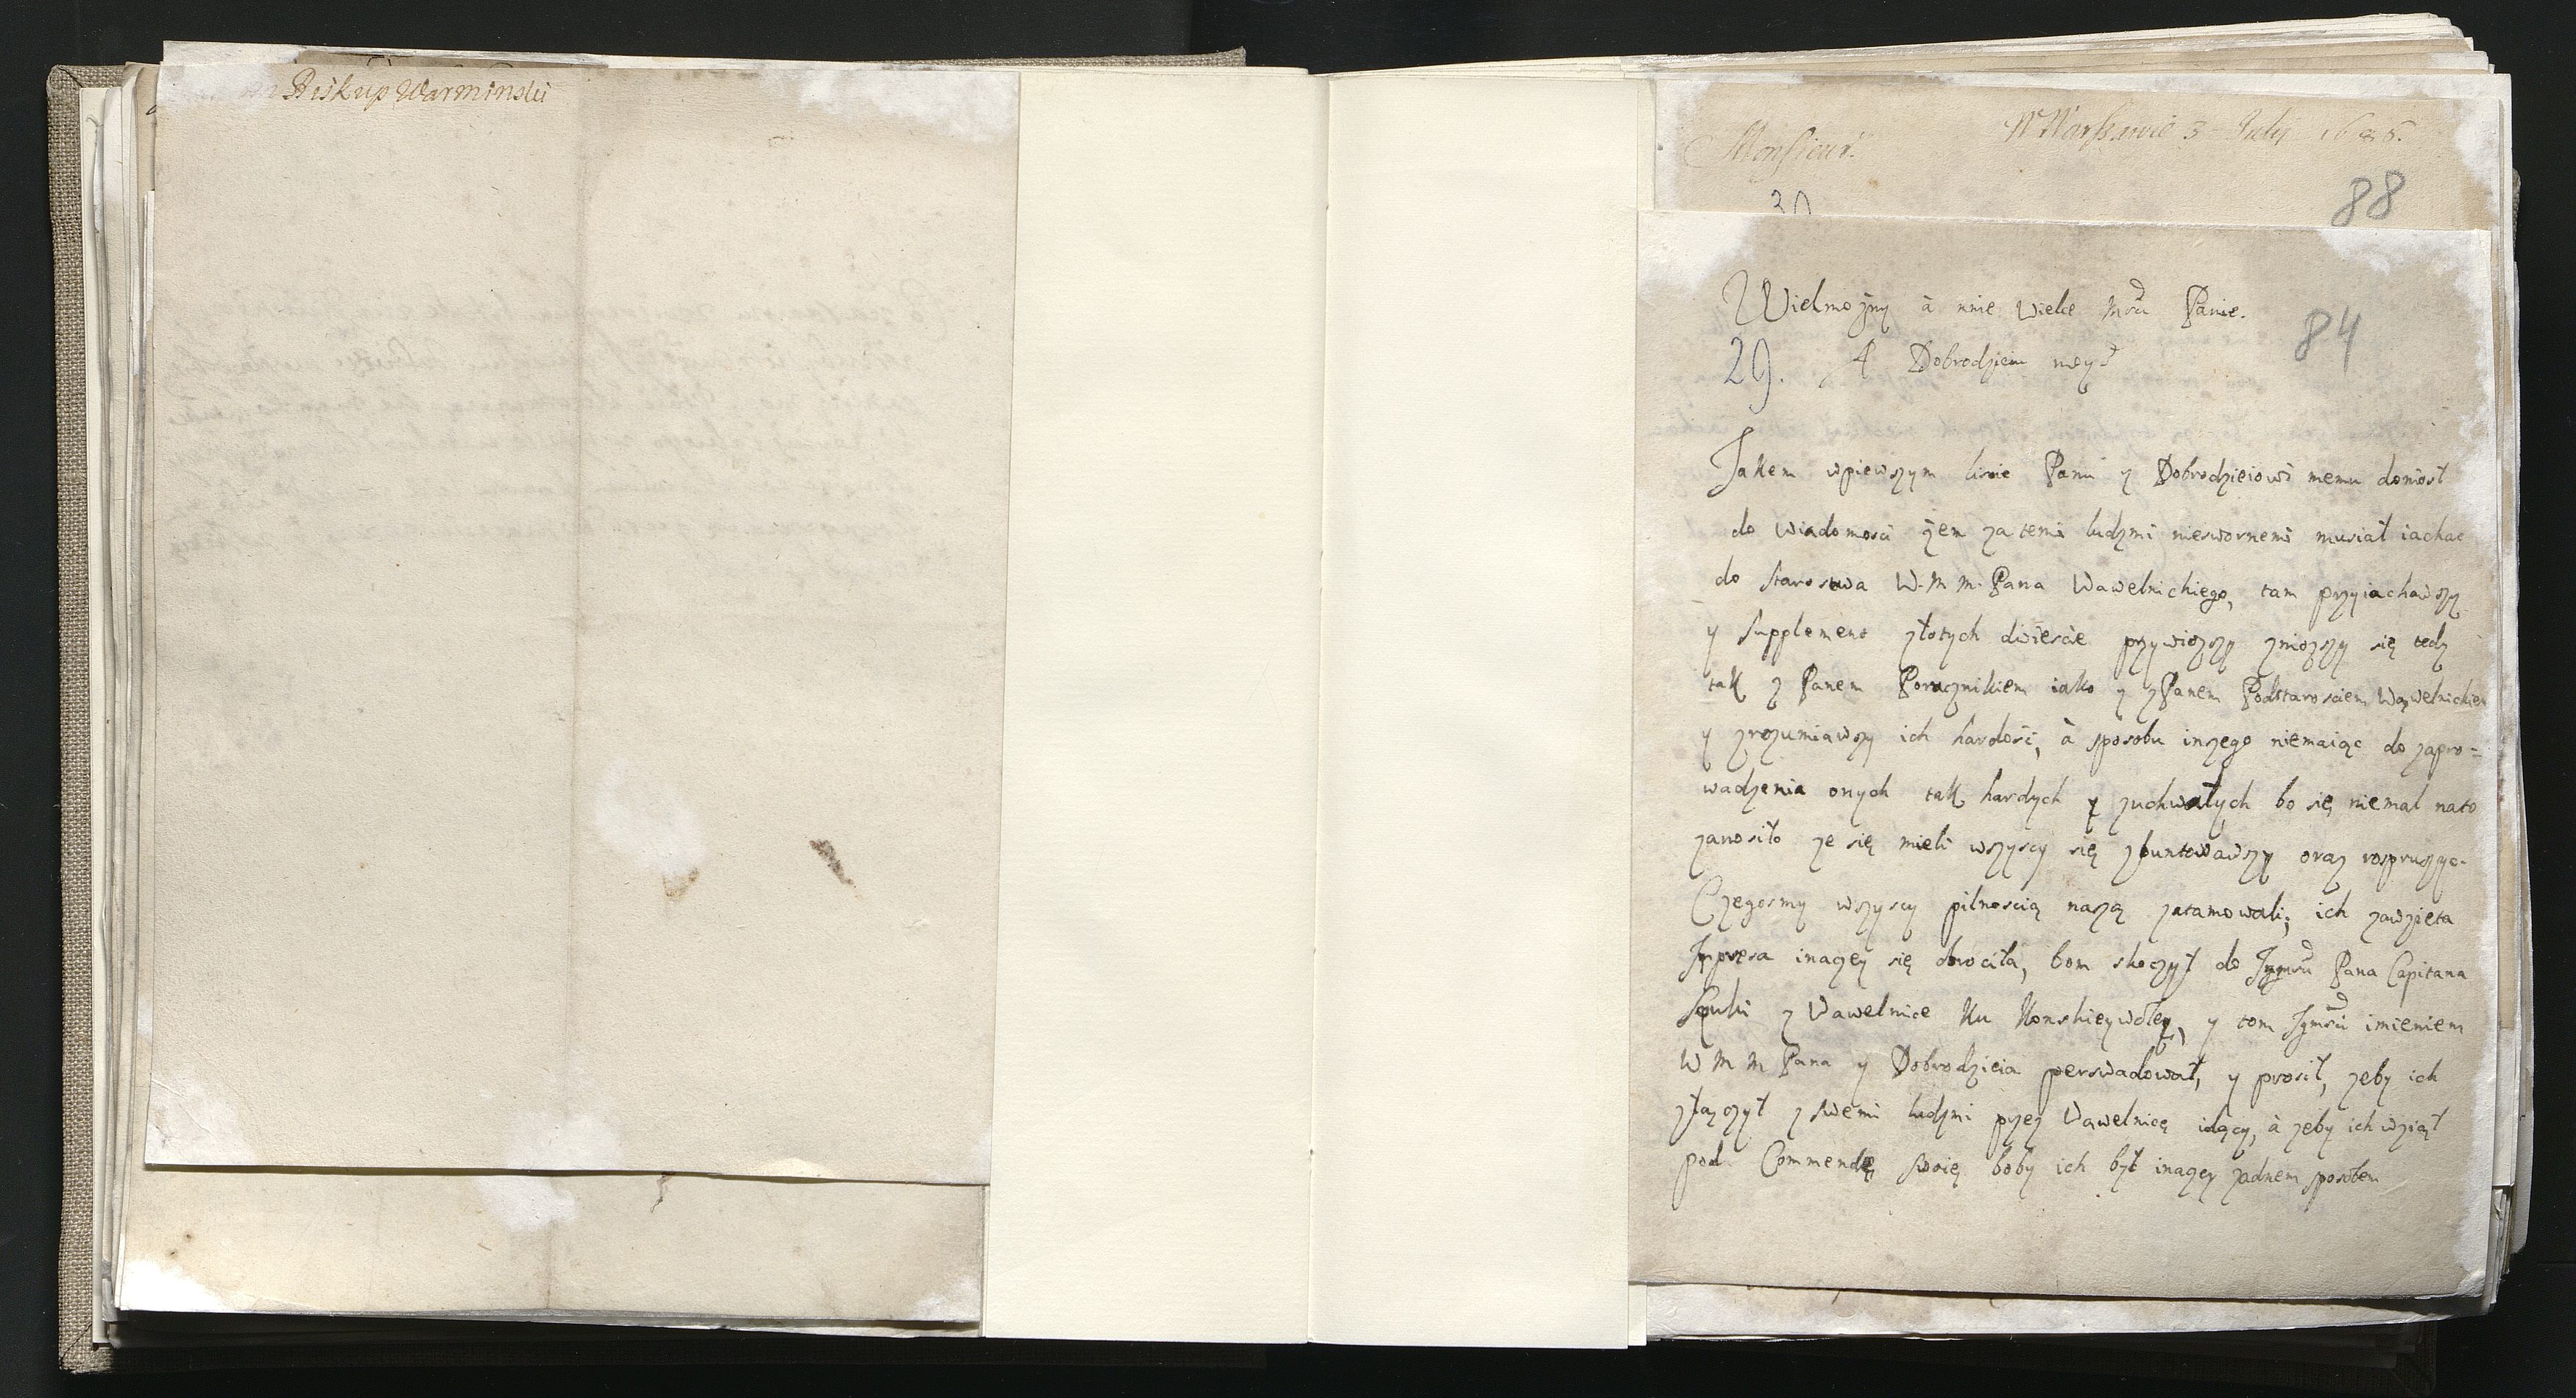 Biskup Warminski
W Warszawie 3 July 1686.
Monsieur.
88
Wielmożny à mnie Wielce Mści Panie.
84
29. A Dobrodzieiu moy
Jakem wpierwszym liscie Panu y Dobrodzieiowi memu doniosł
do wiadomosci żem za temi ludzmi niesfornemi musiał iachac
do starostwa W. M. M. Pana Wawelnickiego, tam przyiachawszy
y supplement złotych dwiescie przywiozszy zniozszy się tedy
tak z Panem Porucznikiem iako y z Panem Podstarosciem Wąwelnickiem
y zrozumiawszy ich hardość, à sposobu inszego niemaiąc do zapro=
wadzenia onych tak hardych y zuchwałych bo się niemal nato
zanosiło ze się mieli wszyscy się zbuntowawszy oraz rospruszyc.
Czegosmy wszyscy pilnoscią naszą zatamowali; ich zawzięta
Impresa inaczey się obrociła, bom skoczył do Jmści Pana Capitana
z Wawelnice Ku Konskieywoley, y tom Jmści imieniem
W M M Pana y Dobrodzieia perswadował, y prosił, zeby ich
złączył z swemi ludzmi przez Wawelnicę idący, à zeby ich wziął
pod Commendę swoię boby ich był inaczey zadnem sposobem